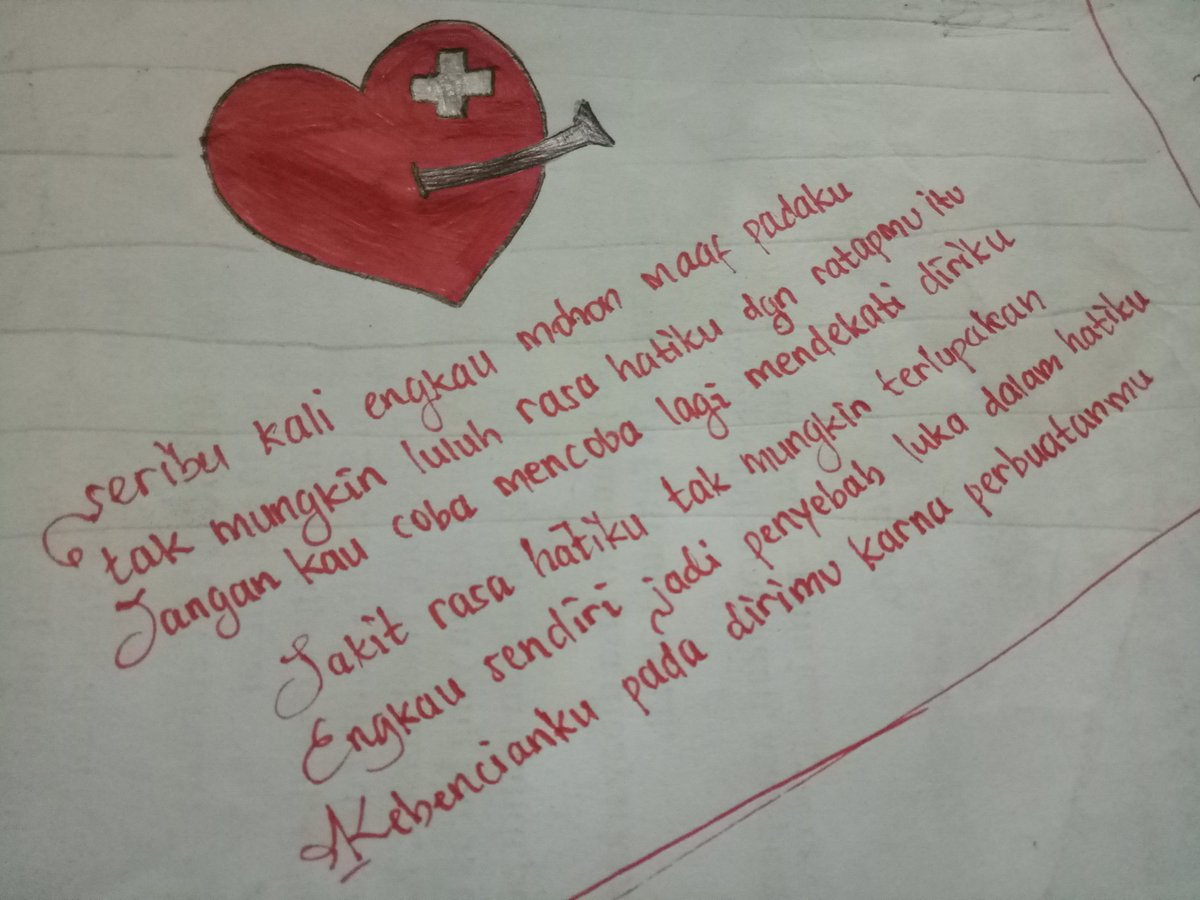 seribu kali engkau mohon maaf padaku
tak mungkin luluh rasa hatiku dgn ratapmu itu
Jangan kau coba mencoba lagi mendekati diriku
Sakit rasa hatiku tak mungkin terlupakan
Engkau sendiri jadi penyebab luka dalam hatiku
Kebencianku pada dirimu karna perbuatanmu